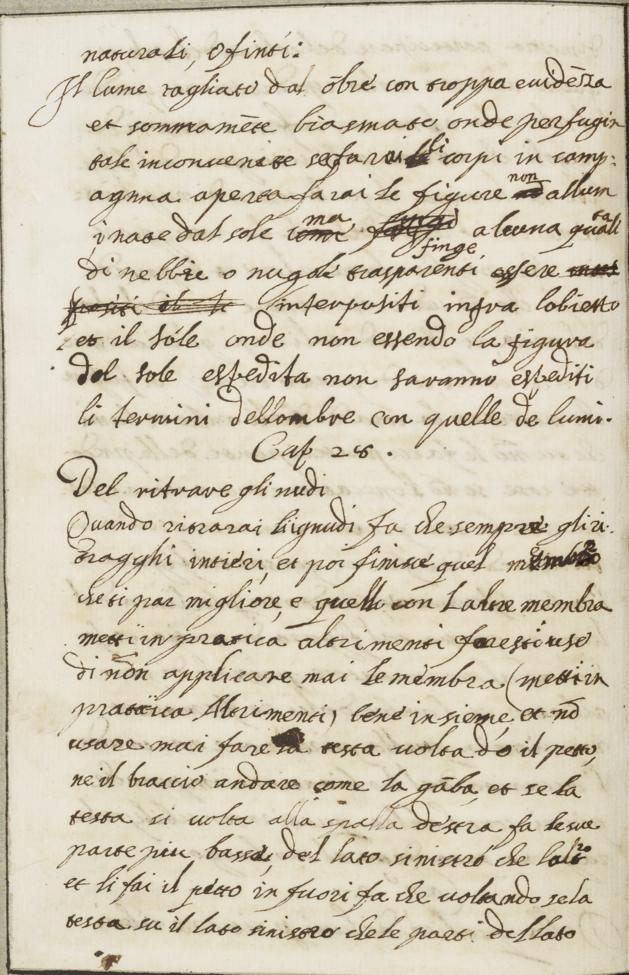 naturali, o finti:
Il lume tagliato dal õbre con troppa evidẽza
et sommamẽte biasmato onde per fugir
tale inconveniẽte se farai li corpi in camp:
agnna aperta farai le figure non allum
inate dal sole ma finge alcuna quãtita
di nebbie o nugole trasparenti essere
interpositi infra lobietto
et il sóle onde non essendo la figura
del sole espedita non saranno espediti
li termini dellombre con quelle de lumi.
Cap 28.
Del ritrare gli nudi
Quando ritrarai li ignudi fa che sempre gli ri:
tragghi intieri, et poi finisce quel membro
che ti par migliore, e quello con Laltre membra
metti in pratica altrimenti faresti uso
di nõn applicare mai le membra (metti in
prattica Altrimenti) bene insieme, et nõ
usare mai fare la testa volta dõ il petto,
ne il braccio andare come la gãba, et se la
testa si volta alla spalla destra fa le sue
parte piu basse, del lato sinistro che laltro
et li fai il petto in fuori fa che voltando se la
testa su il lato sinistro che le parti del lato